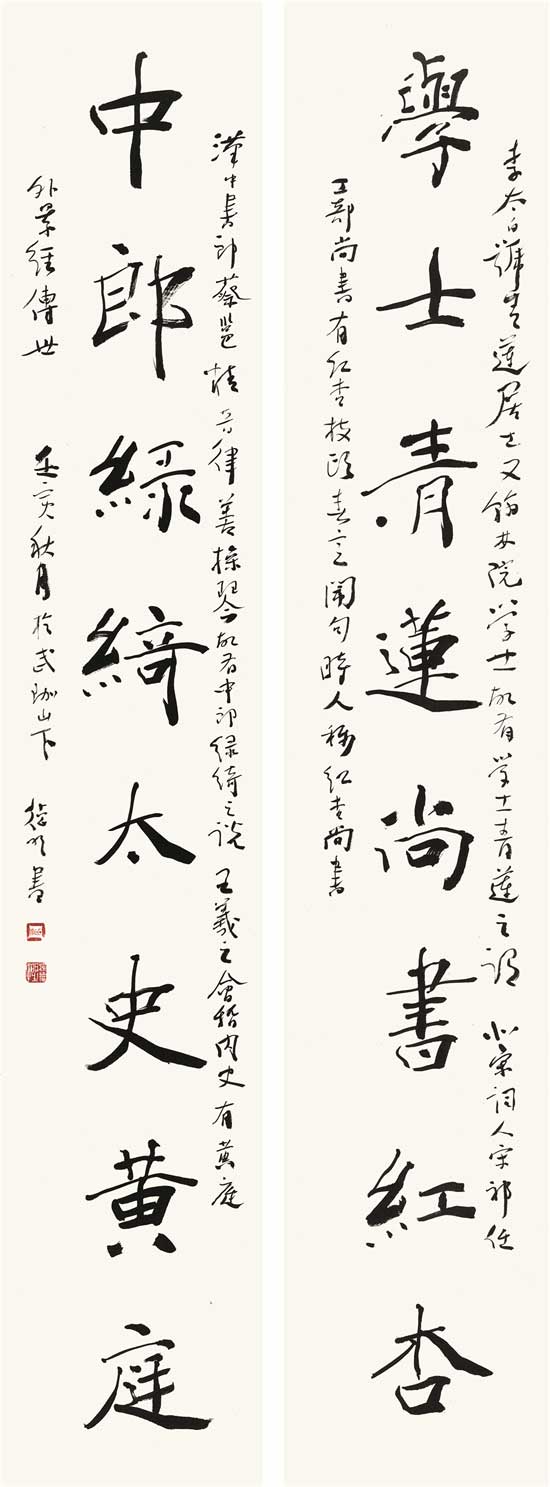 李太白號青蓮居士又翰林院學士故有學士青蓮之謂 北宋詞人宋祁任
學士青蓮尚書紅杏
工部尚書有紅杏枝頭春意鬧句時人稱紅杏尚書
漢中書郎蔡邕精音律善操琴故有中郎綠綺之說 王羲之會稽內史有黃庭
中郎綠綺太史黃庭
外景經傳世 壬寅秋月於武珈山下 書